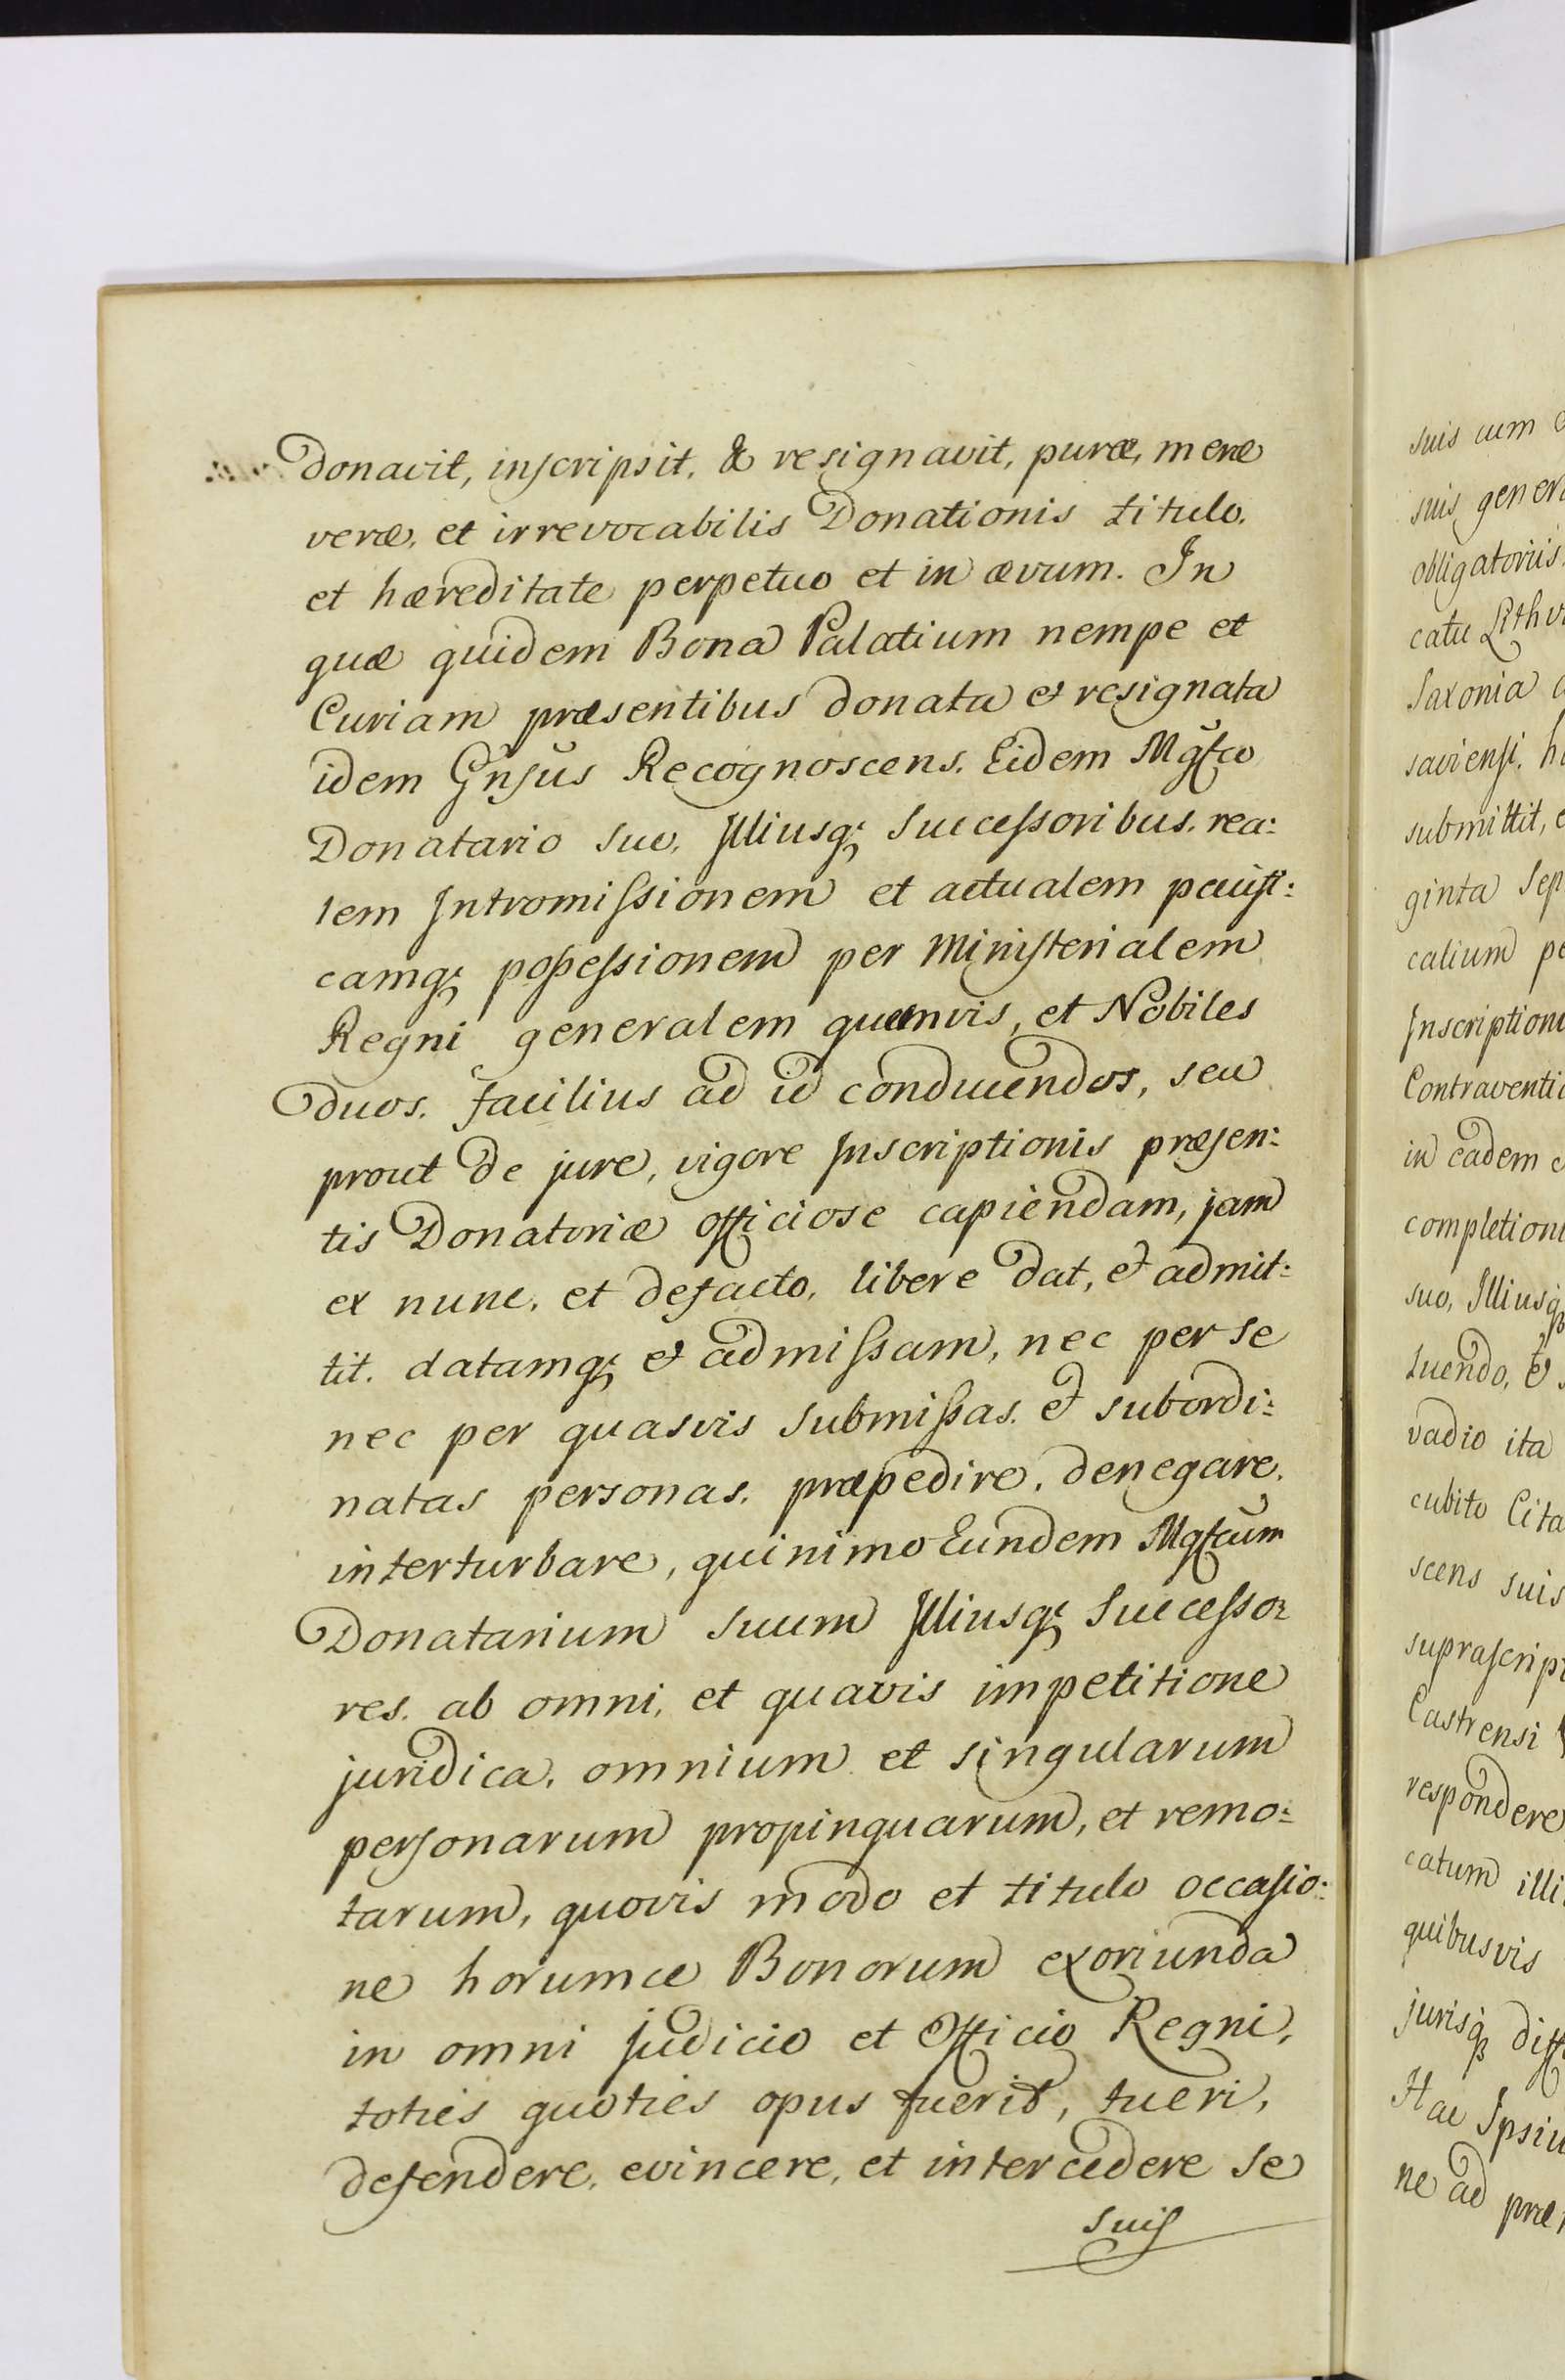 Donavit, inscripsit, & resignavit, puræ, meræ
veræ, et irrevocabilis Donationis titulo,
et hæreditate perpetuo et in ævum. In
quæ quidem Bona Palatium nempe et
Curiam præsentibus donata et resignata
idem Gnsus Recognoscens, Eidem Mgfco
Donatario suo, Illiusq; Successoribus, rea:
lem Intromissionem et actualem pacifi:
camq; possessionem per Ministerialem
Regni generalem quemvis, et Nobiles
Duos, facilius ad id conducendos, seu
prout de jure, vigore Inscriptionis præsen:
tis Donatoriæ officiose capiendam, jam
ex nunc, et defacto, libere dat, et admit:
tit, datamq; et admissam, nec per se
nec per quasvis submissas, et subordi:
natas personas, præpedire, denegare,
interturbare, quinimo Eundem Mgfcum
Donatarium suum Illiusq; Successo:
res, ab omni, et quavis impetitione
juridica, omnium et singularum
personarum propinquarum, et remo:
tarum, quovis modo et titulo occasio:
ne horumce Bonorum exoriunda
in omni Judicio et Officio Regni,
toties quoties opus fuerit, tueri,
defendere, evincere, et intercedere se
suis
suis cum
suis gener
obligatoriis
catu Lithv
Saxonia
saviensi, h
submittit, e
ginta Sep
calium pe
Inscription
Contraventi
in eadem
completion
suo, Illiusq;
luendo, et
vadio ita
cubito Cita
scens suis
suprascrip
Castrensi
respondere
catum illi
quibusvis
jurisq; diff
Hac Ipsiu
ne ad præ